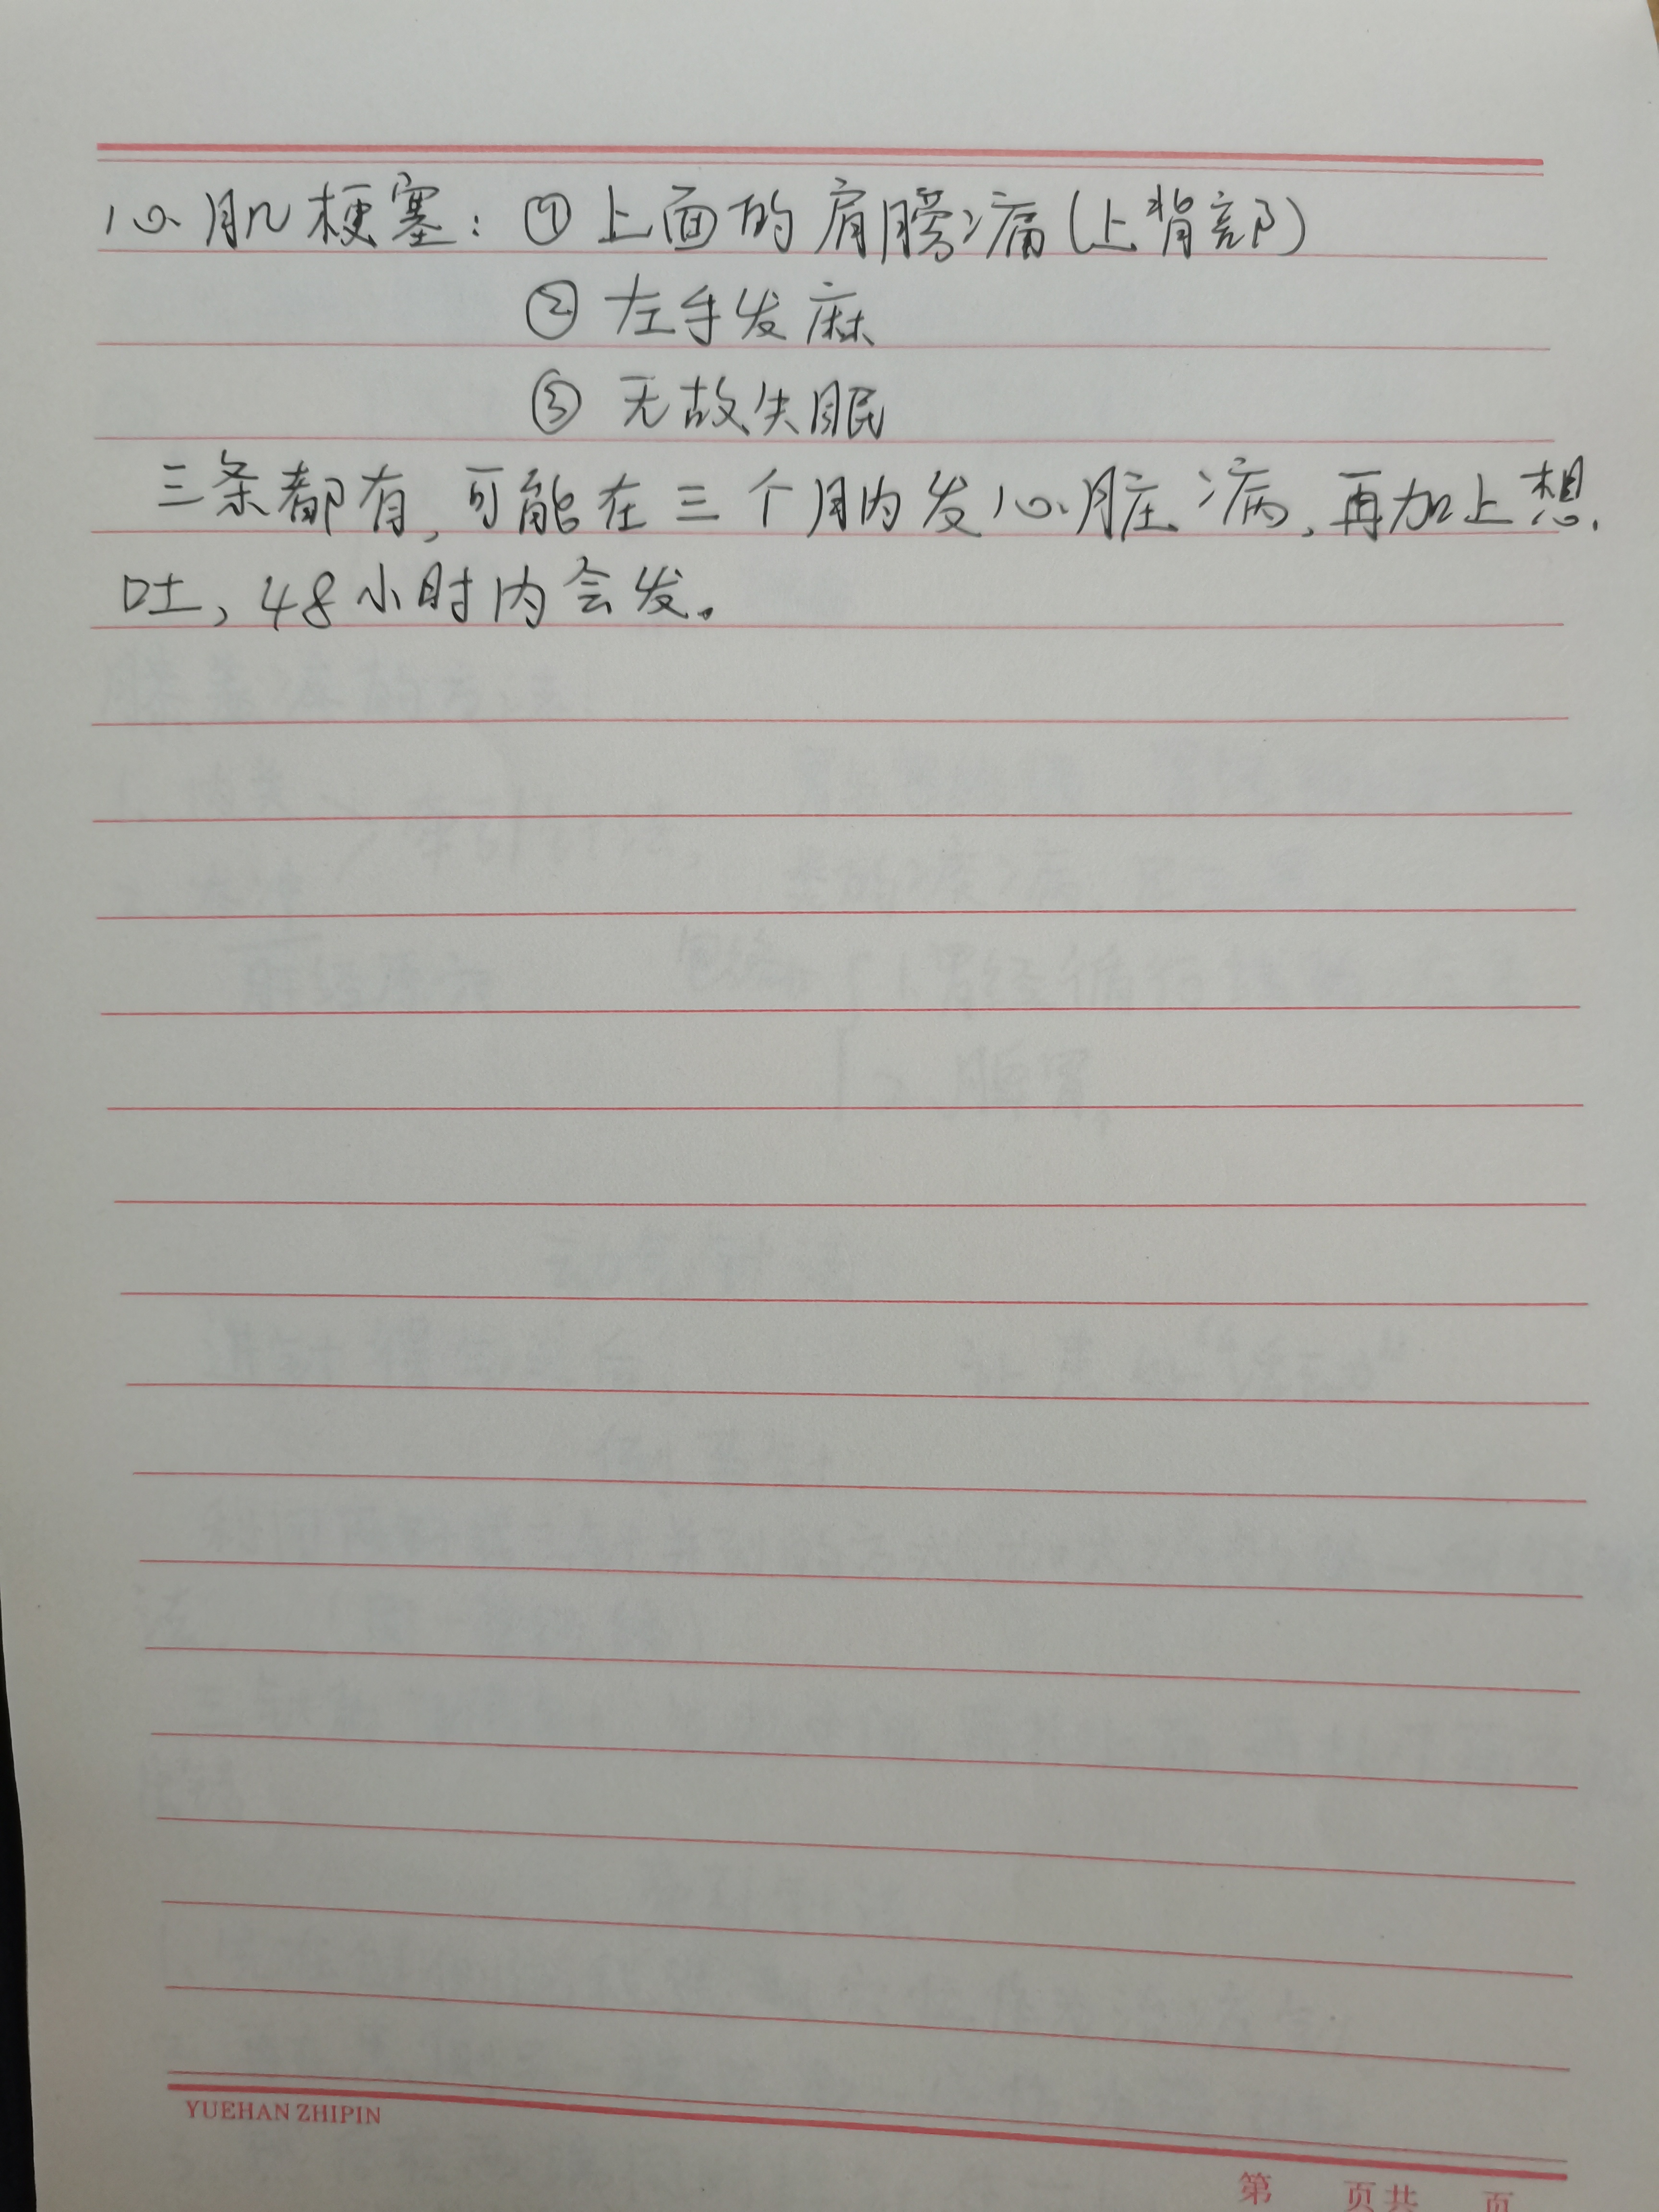 心肌梗塞：① 上面的肩膀痛（上背部）
② 左手发麻
③ 无故失眠
三条都有，可能在三个月内发心脏病，再加上想
吐，48小时内会发。
YUEHAN ZHIPIN
第 页共 页